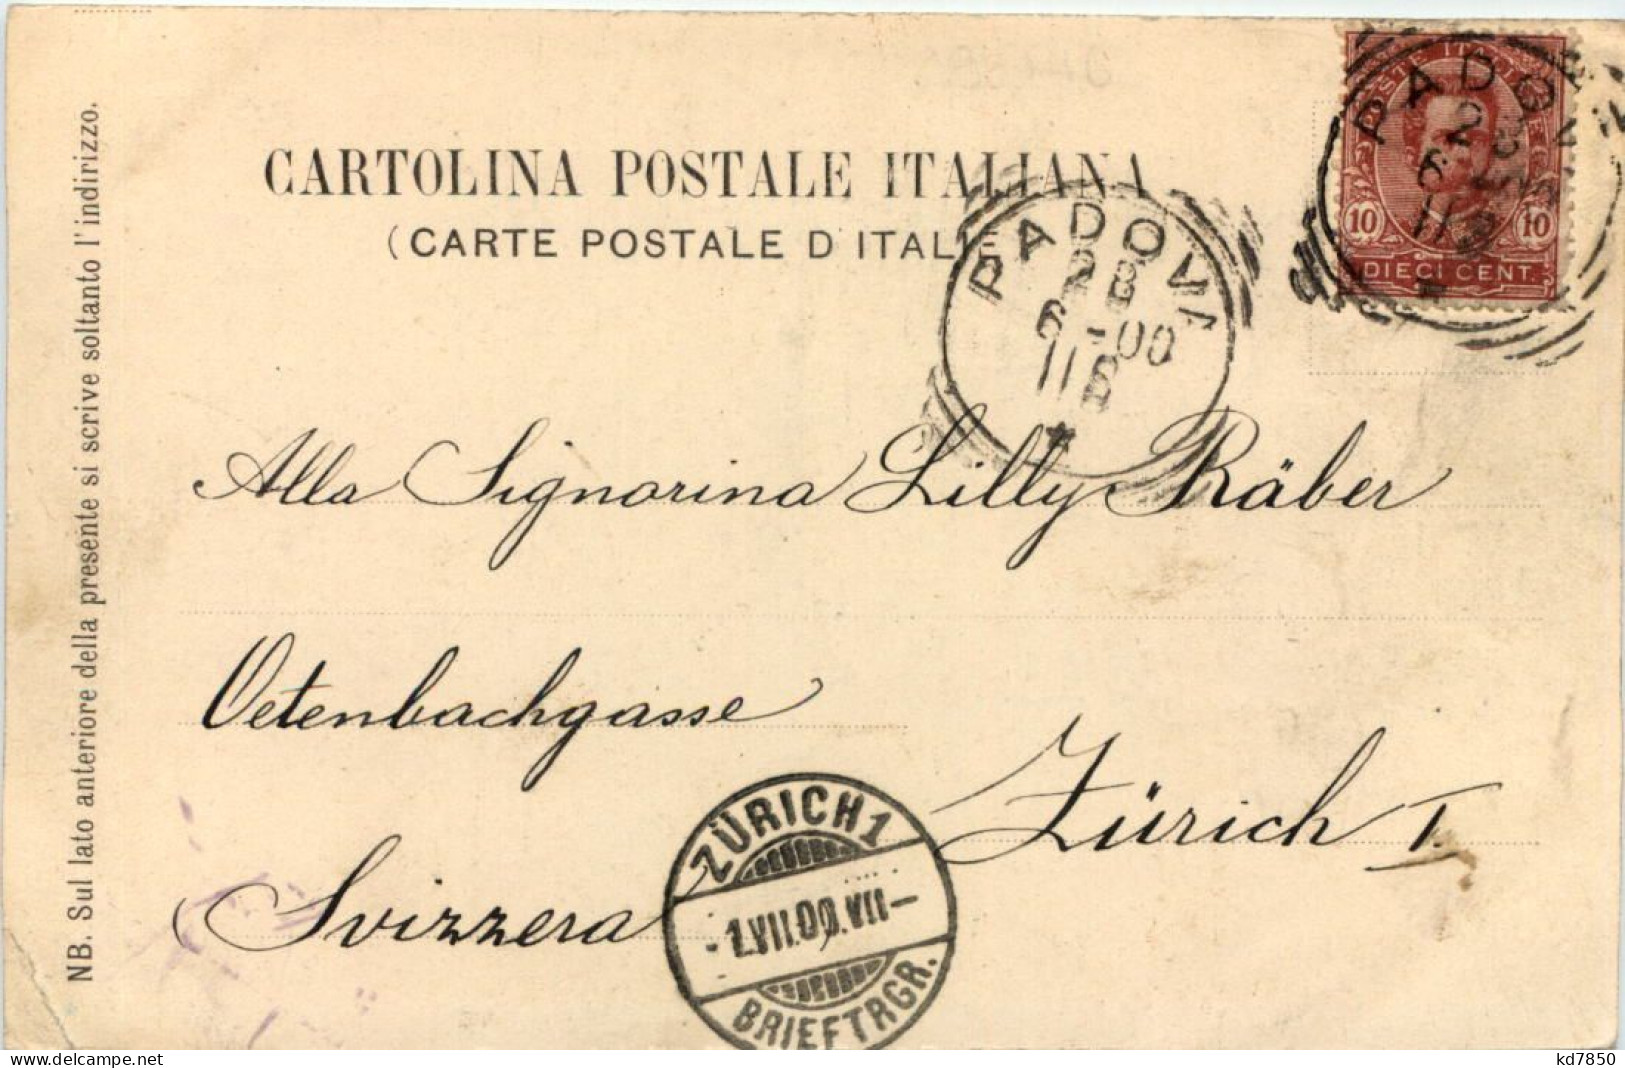 CARTOLINA POSTALE ITALIANA
(CARTE POSTALE D'ITALIE
POSTE ITALIANE
10 10
DIECI CENT.
PADOVA
2
6
11
PADOVA
28
6-00
11
Alla Signorina Lilly Räber
Oetenbachgasse
Zürich I.
Svizzera
ZÜRICH 1
-1.VII.00.VII-
BRIEFTRGR.
NB. Sul lato anteriore della presente si scrive soltanto l'indirizzo.
www.delcampe.net
kd7850